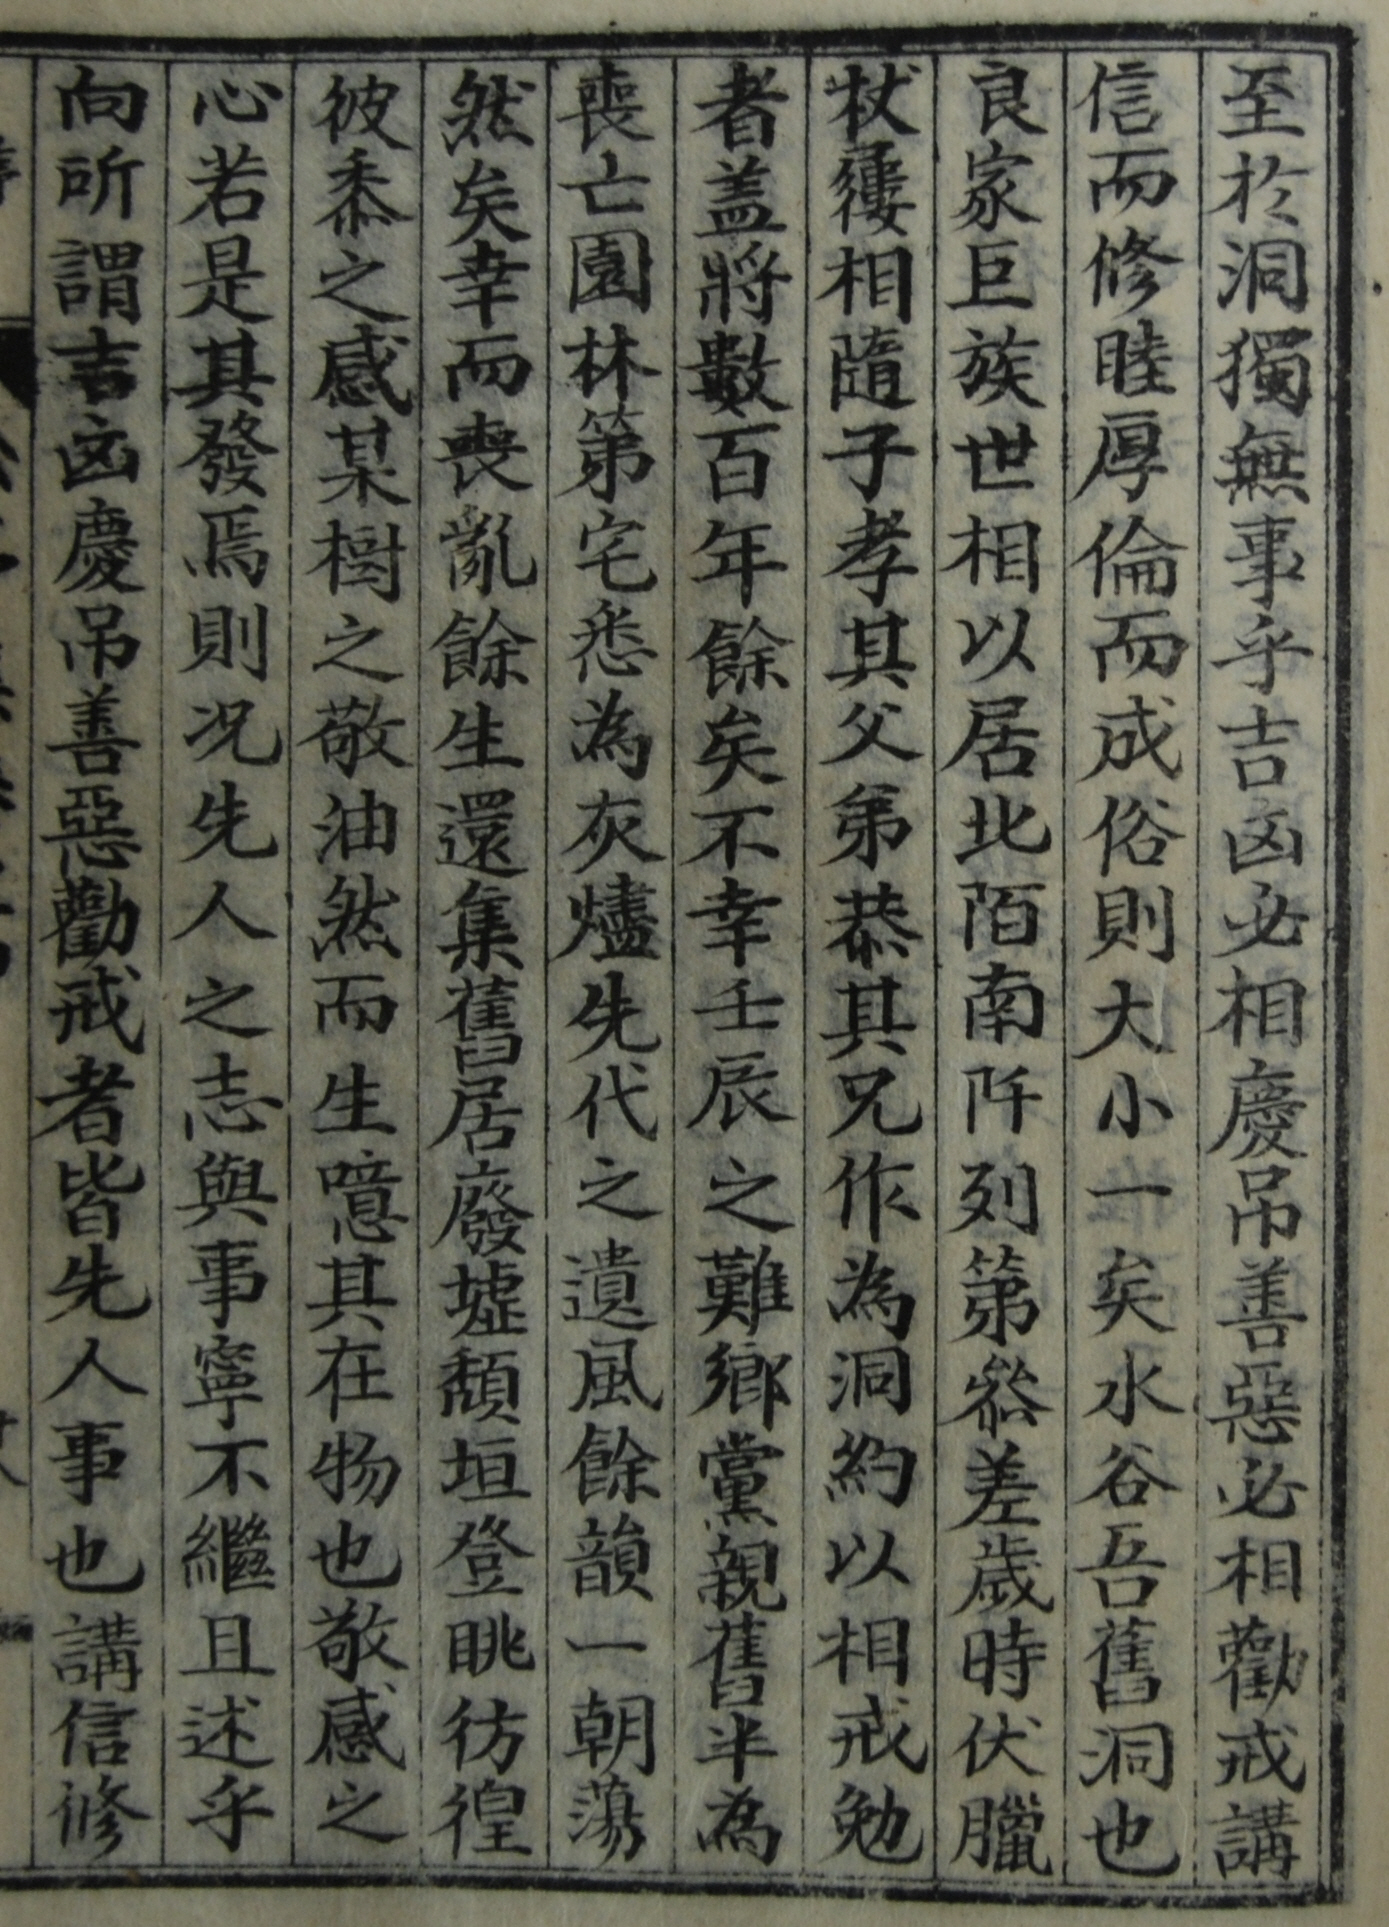 至於洞獨無事乎吉凶必相慶吊善惡必相勸戒講
信而修睦厚倫而成俗則大小一矣水谷吾舊洞也
良家巨族世相以居北陌南阡列第叅差歲時伏臘
杖屨相隨子孝其父弟恭其兄作為洞約以相戒勉
者盖將數百年餘矣不幸壬辰之難鄉黨親舊半為
喪亡園林第宅悉為灰燼先代之遺風餘韻一朝蕩
然矣幸而喪亂餘生還集舊居廢墟頹垣登眺彷徨
彼黍之感某樹之敬油然而生噫其在物也敬感之
心若是其發焉則况先人之志與事寧不繼且述乎
向所謂吉凶慶吊善惡勸戒者皆先人事也講信修